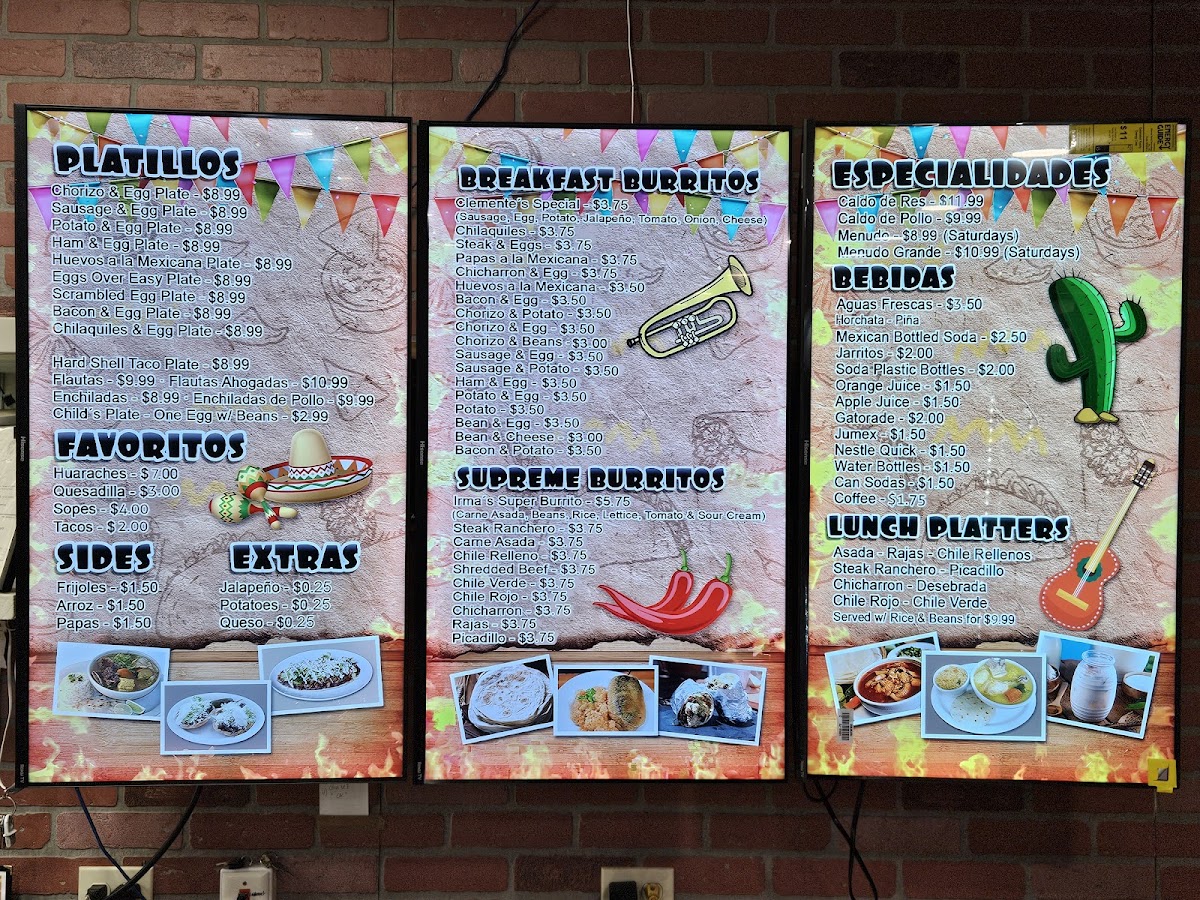 PLATILLOS
Chorizo & Egg Plate - $8.99
Sausage & Egg Plate - $8.99
Potato & Egg Plate - $8.99
Ham & Egg Plate - $8.99
Huevos a la Mexicana Plate - $8.99
Eggs Over Easy Plate - $8.99
Scrambled Egg Plate - $8.99
Bacon & Egg Plate - $8.99
Chilaquiles & Egg Plate - $8.99
Hard Shell Taco Plate - $8.99
Flautas - $9.99 - Flautas Ahogadas - $10.99
Enchiladas - $8.99 - Enchiladas de Pollo - $9.99
Child´s Plate - One Egg w/ Beans - $2.99
FAVORITOS
Huaraches - $7.00
Quesadilla - $3.00
Sopes - $4.00
Tacos - $2.00
SIDES
Frijoles - $1.50
Arroz - $1.50
Papas - $1.50
EXTRAS
Jalapeño - $0.25
Potatoes - $0.25
Queso - $0.25
BREAKFAST BURRITOS
Clemente´s Special - $3.75
(Sausage, Egg, Potato, Jalapeño, Tomato, Onion, Cheese)
Chilaquiles - $3.75
Steak & Eggs - $3.75
Papas a la Mexicana - $3.75
Chicharron & Egg - $3.75
Huevos a la Mexicana - $3.50
Bacon & Egg - $3.50
Chorizo & Potato - $3.50
Chorizo & Egg - $3.50
Chorizo & Beans - $3.00
Sausage & Egg - $3.50
Sausage & Potato - $3.50
Ham & Egg - $3.50
Potato & Egg - $3.50
Potato - $3.50
Bean & Egg - $3.50
Bean & Cheese - $3.00
Bacon & Potato - $3.50
SUPREME BURRITOS
Irma´s Super Burrito - $5.75
(Carne Asada, Beans, Rice, Lettice, Tomato & Sour Cream)
Steak Ranchero - $3.75
Carne Asada - $3.75
Chile Relleno - $3.75
Shredded Beef - $3.75
Chile Verde - $3.75
Chile Rojo - $3.75
Chicharron - $3.75
Rajas - $3.75
Picadillo - $3.75
ESPECIALIDADES
Caldo de Res - $11.99
Caldo de Pollo - $9.99
Menudo - $8.99 (Saturdays)
Menudo Grande - $10.99 (Saturdays)
BEBIDAS
Aguas Frescas - $3.50
Horchata - Piña
Mexican Bottled Soda - $2.50
Jarritos - $2.00
Soda Plastic Bottles - $2.00
Orange Juice - $1.50
Apple Juice - $1.50
Gatorade - $2.00
Jumex - $1.50
Nestle Quick - $1.50
Water Bottles - $1.50
Can Sodas - $1.50
Coffee - $1.75
LUNCH PLATTERS
Asada - Rajas - Chile Rellenos
Steak Ranchero - Picadillo
Chicharron - Desebrada
Chile Rojo - Chile Verde
Served w/ Rice & Beans for $9.99
Hisense
Hisense
Hisense
Roku TV
$11